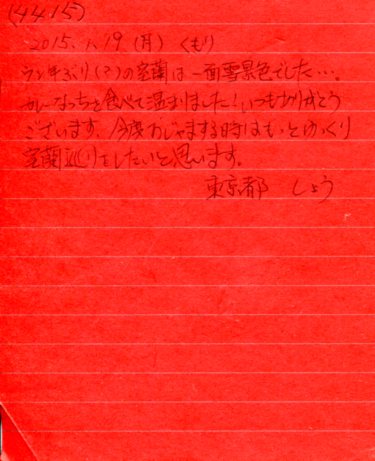 (4415)
2015.1.19 (月) くもり
ウン年ぶり(?)の室蘭は一面雪景色でした…。
カレーなっちを食べて温まりました!いつもありがとう
ございます。今度おじゃまする時はもっとゆっくり
室蘭巡りをしたいと思います。
東京都 しょう